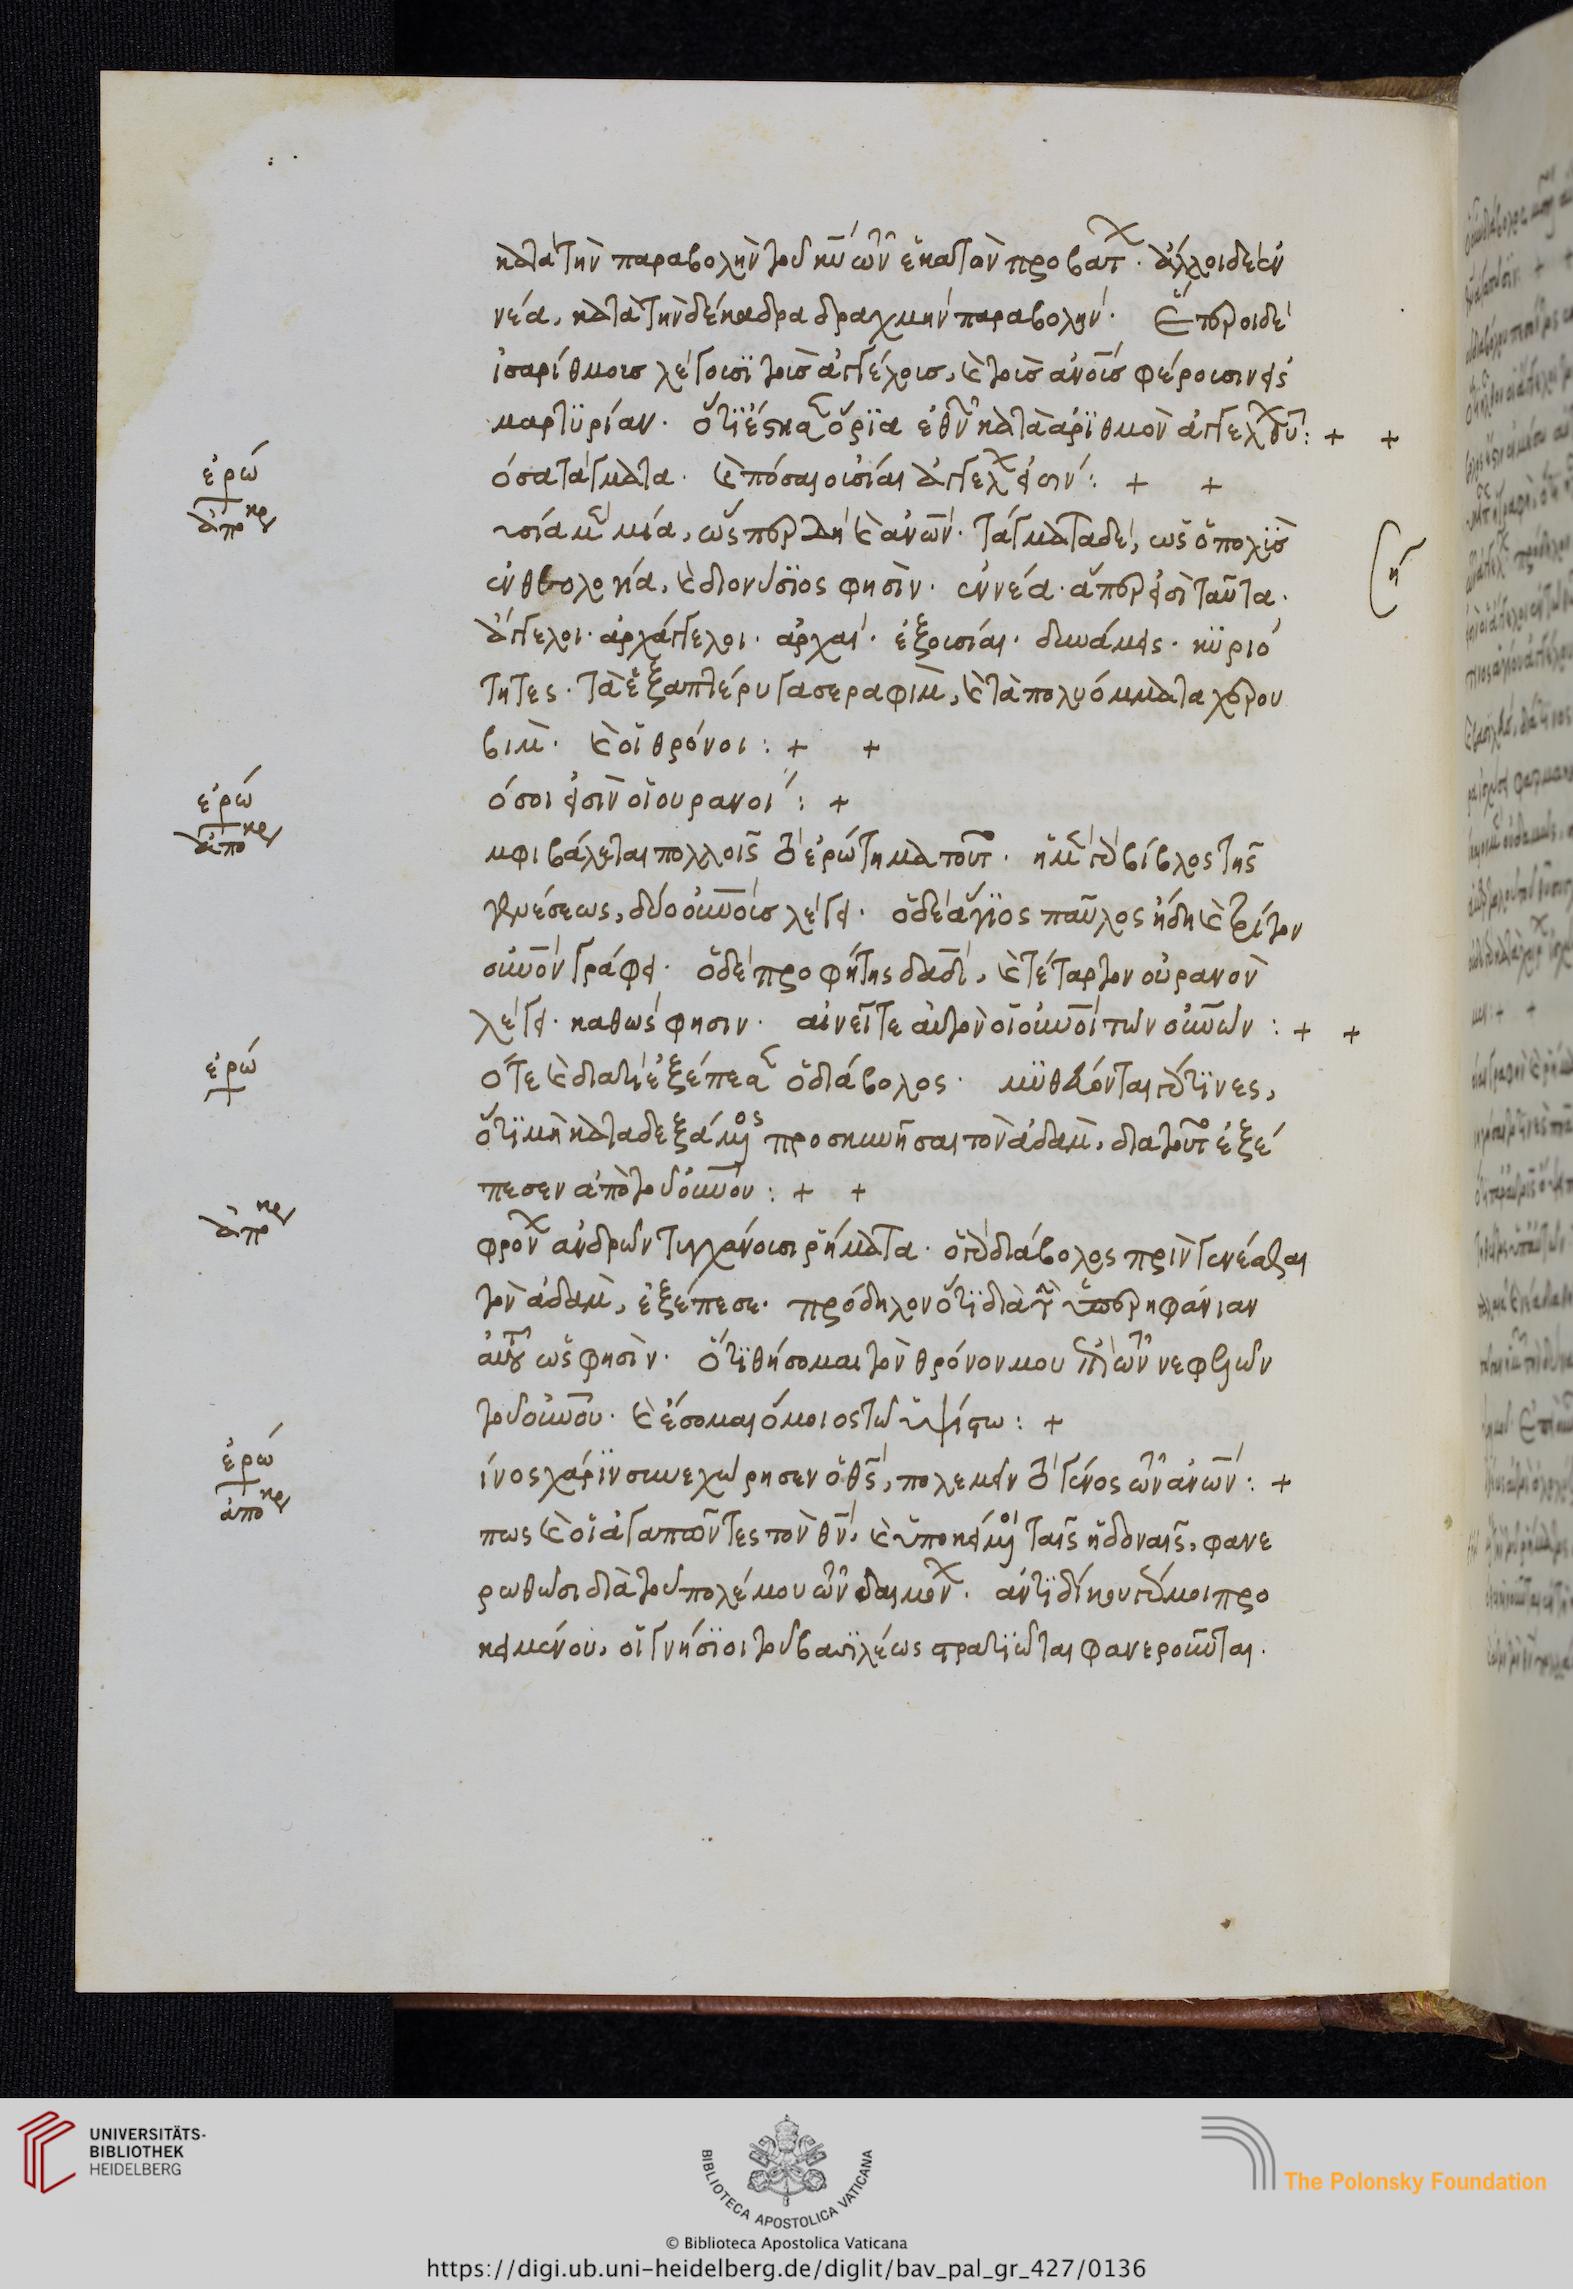 κατὰ τὴν παραβολὴν τοῦ κυ τῶν ἑκατὸν προβατ. ἄλλοι δὲ ἐν
νέα, κατὰ τὴν δέκαδραδραχμὴν παραβολήν. Ἕτεροι δὲ
ἰσαρίθμους λέγουσϊ τοῖς ἀγγέλοις, καὶ τοῖς ἀνοις φέρουσιν εἰς
μαρτϋρίαν. ὅτϊ ἔστησεν ὅρϊα ἐθνῶν κατὰ ἀρϊθμὸν ἀγγέλων θυ: + +
ἐρώ
ἀποκρ
όσα τάγματα. καὶ πόσαι οὐσίαι ἀγγέλων εἰσιν: + +
υσία μὲν μία, ὥσπερ δὴ καὶ ἀνων. τάγματα δὲ, ὡς ὁ πολὺς
ἐν θεολογίᾳ, καὶ διονύσϊος φησὶν. ἐννέα. ἅπερ εἰσὶ ταῦτα.
η
ἄγγελοι. ἀρχάγγελοι. ἀρχαὶ. ἐξουσίαι. δυνάμεις. κϋριό
τητες. τὰ ἑξαπτέρυγα σεραφὶμ, καὶ τὰ πολυόμματα χερου
βιμ. καὶ οἱ θρόνοι: + +
ἐρώ
ἀποκρ
όσοι εἰσὶν οἱ ουρανοί: +
μφιβάλεται πολλοῖς τὸ ἐρώτημα τοῦτο. ἡ μὲν γὰρ βίβλος τῆς
γενέσεως, δύο οὐνοὺς λέγει. ὁ δὲ ἅγϊος παῦλος ἤδη καὶ τρίτον
οὐνον γράφει. ὁ δὲ προφήτης δαδ, καὶ τέταρτον οὐρανὸν
λέγει. καθώς φησιν. αἰνεῖτε αὐτὸν οἱ οὐνοὶ τῶν οὐνων: + +
ἐρώ
ότε καὶ διατὶ ἐξέπεσεν ὁ διάβολος. μϋθεύονται γάρ τϊνες,
ὅτϊ μὴ καταδεξάμενος προσκυνῆσαι τὸν ἀδὰμ, διὰ τοῦτο ἐξέ
πεσεν ἀπὸ τοῦ οὐνου: + +
ἀποκρ
φρόνων ἀνδρῶν τυγχάνουσι ῥήματα. ὁ γὰρ διάβολος πρὶν γενέσθαι
τὸν ἀδὰμ, ἐξέπεσε. πρόδηλον ὅτϊ διὰ τὴν ὑπερηφάνιαν
αὐτοῦ ὥς φησὶν. ὅτϊ θήσομαι τὸν θρόνον μου ἐπὶ τῶν νεφελῶν
τοῦ οὐνου. καὶ ἔσομαι ὅμοιος τῶ ὑψίστω: +
ἐρώ
ἀποκρ
ίνος χάρϊν συνεχώρησεν ὁ θς, πολεμεῖν τὸ γένος τῶν ἀνων: +
πως καὶ οἱ ἀγαπῶντες τὸν θν, καὶ ὑποκείμενοι ταῖς ἡδοναῖς, φανε
ρωθῶσι διὰ τοῦ πολέμου τῶν δαιμόνων. ἀντϊδίκου γάρ μοι προ
κειμένου, οἱ γνήσϊοι τοῦ βασϊλέως στρατϊῶται φανεροῦνται.
UNIVERSITÄTS-
BIBLIOTHEK
HEIDELBERG
BIBLIOTECA APOSTOLICA VATICANA
The Polonsky Foundation
© Biblioteca Apostolica Vaticana
https://digi.ub.uni-heidelberg.de/diglit/bav_pal_gr_427/0136